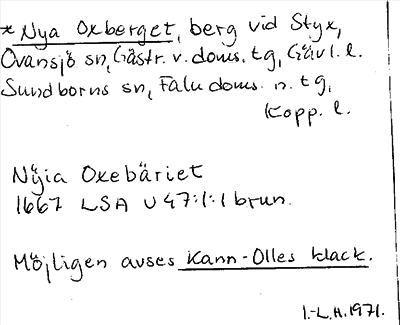 * Nya Oxberget, berg vid Styx,
Ovansjö sn, Gästr. v. doms. tg, Gävl. l.
Sundborns sn, Falu doms. n. tg,
Kopp. l.
Nÿia Oxebäriet
1667 LSA U 47:1:1 brun.
Möjligen avses Kann-Olles klack.
I.-L.H. 1971.